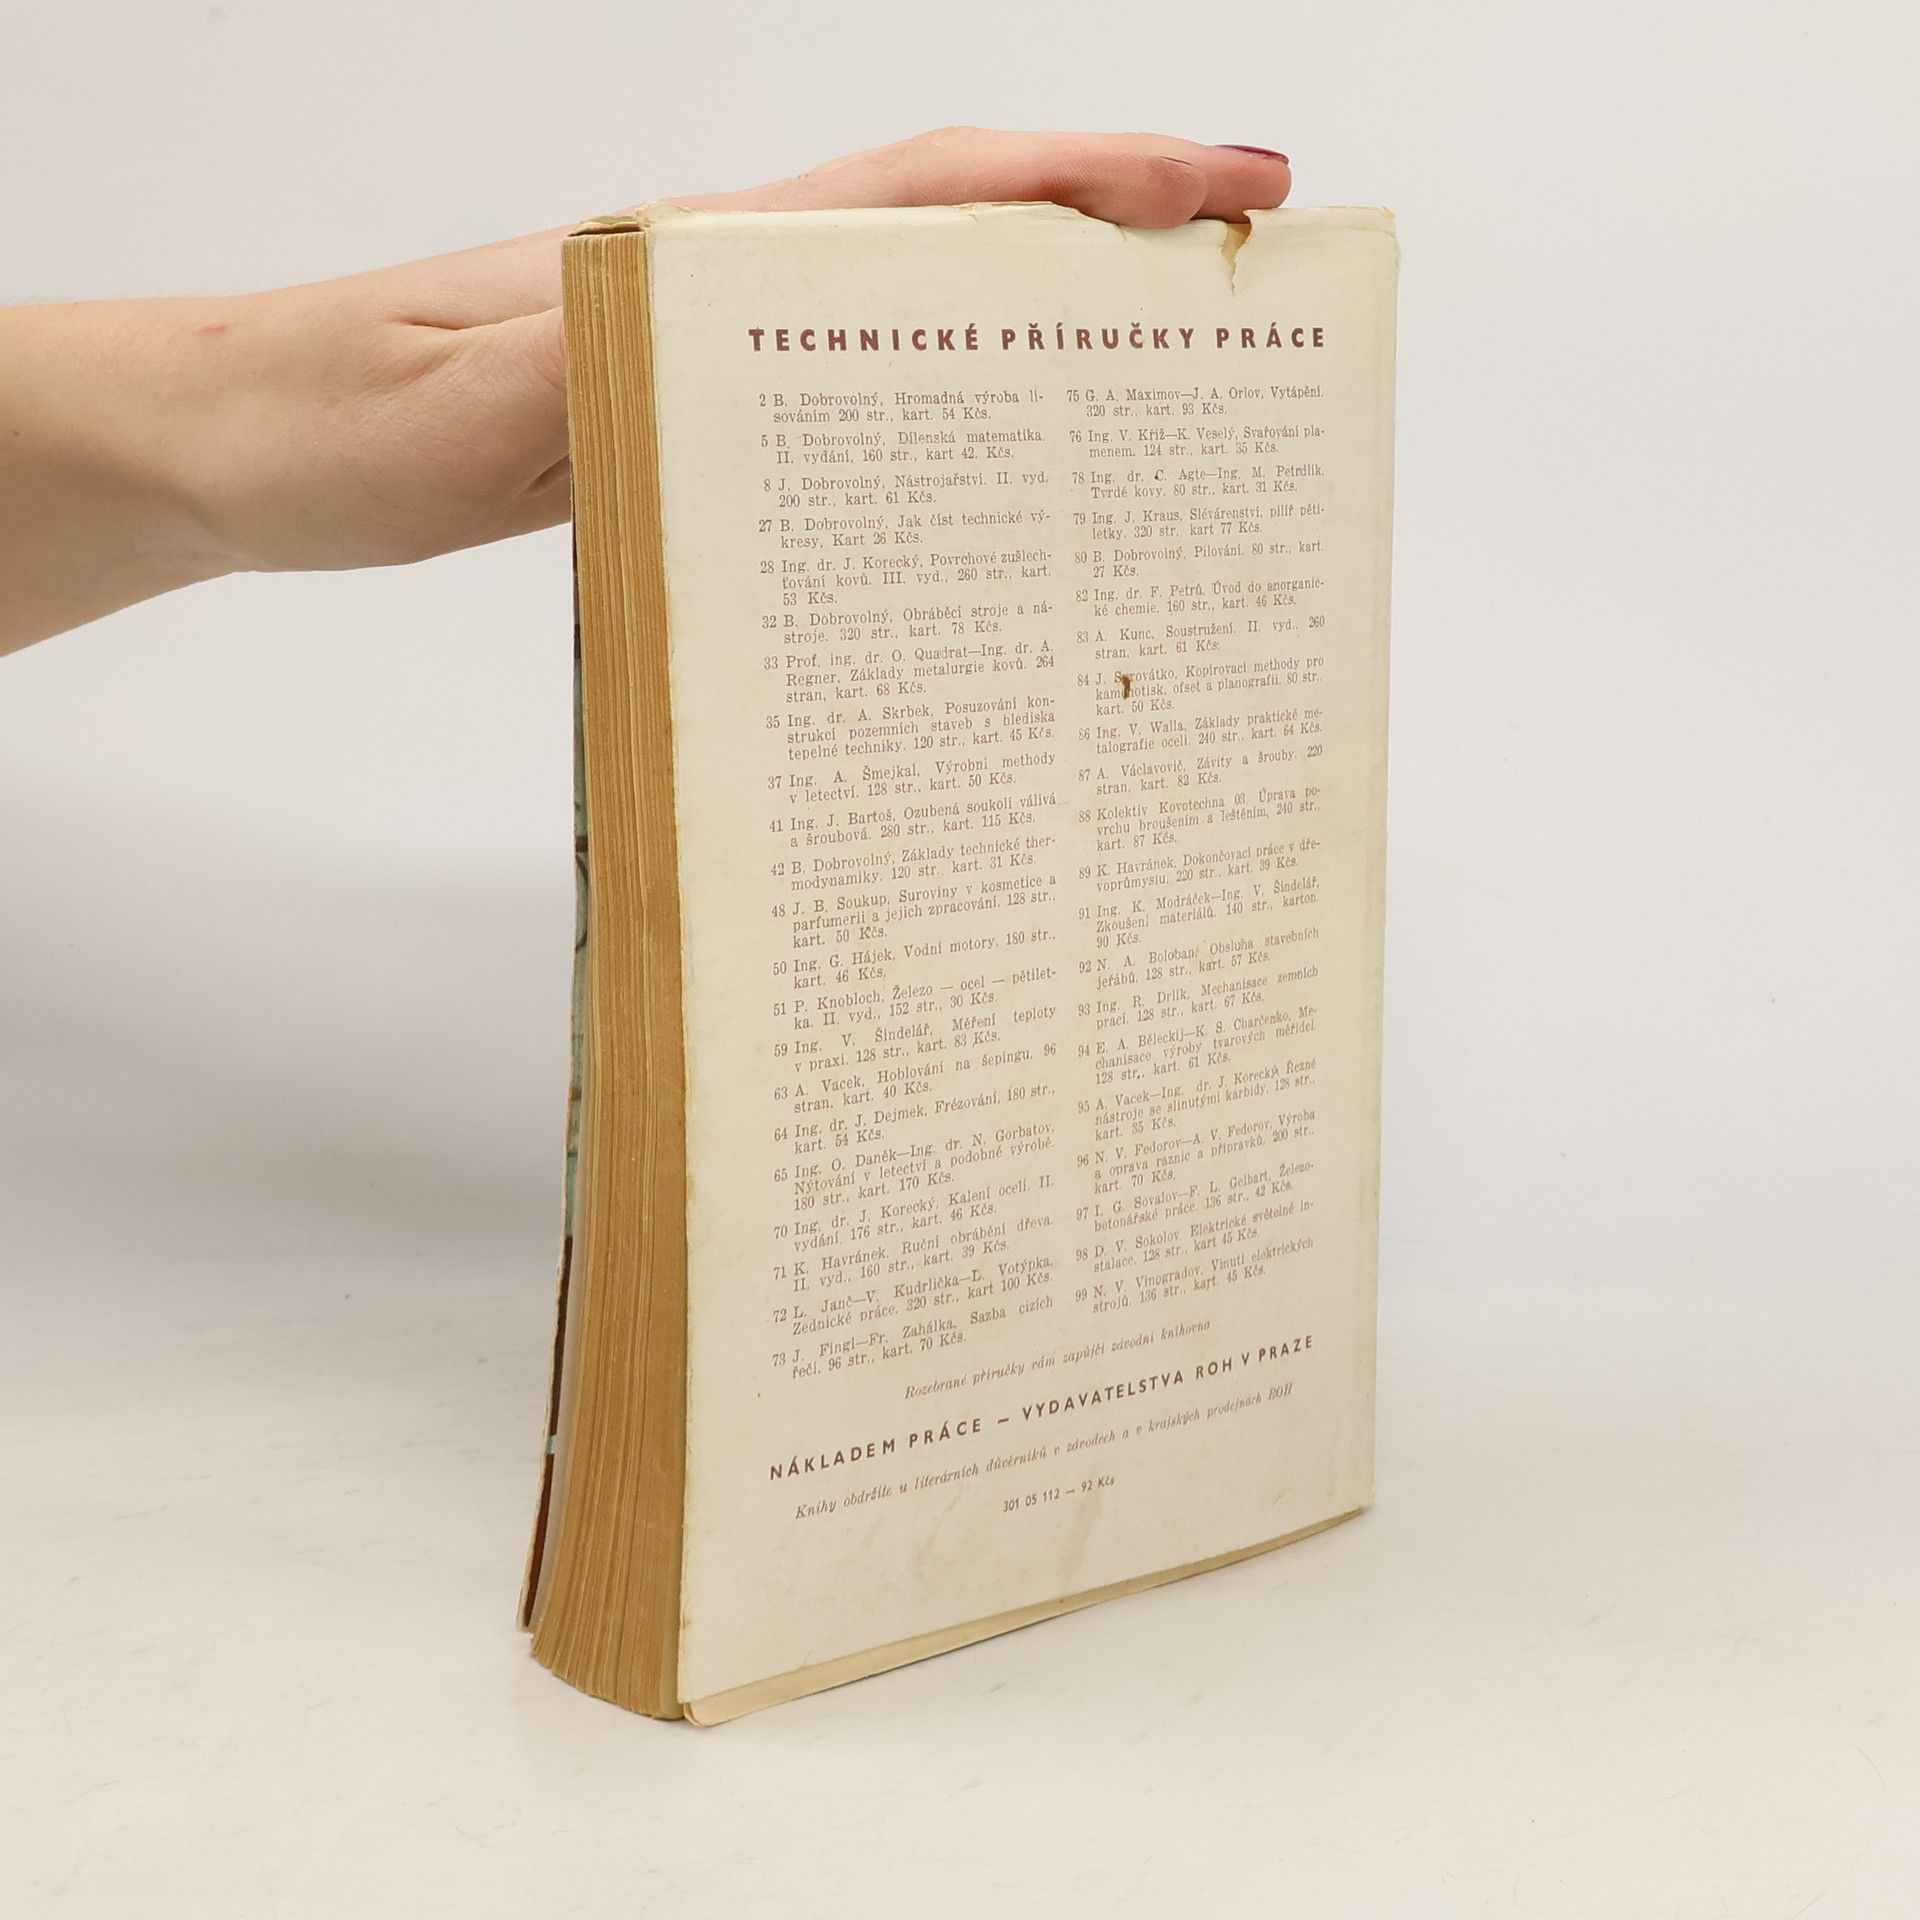 TECHNICKÉ PŘÍRUČKY PRÁCE
2 B. Dobrovolný, Hromadná výroba li-
sováním 200 str., kart. 54 Kčs.
5 B. Dobrovolný, Dílenská matematika.
II. vydání, 160 str., kart 42. Kčs.
8 J. Dobrovolný, Nástrojařství. II. vyd.
200 str., kart. 61 Kčs.
27 B. Dobrovolný, Jak číst technické vý-
kresy, Kart 26 Kčs.
28 Ing. dr. J. Korecký, Povrchové zušlech-
ťování kovů. III. vyd., 260 str., kart.
53 Kčs.
32 B. Dobrovolný, Obráběcí stroje a ná-
stroje. 320 str., kart. 78 Kčs.
33 Prof. ing. dr. O. Quadrat—Ing. dr. A.
Regner, Základy metalurgie kovů. 264
stran, kart. 68 Kčs.
35 Ing. dr. A. Skrbek, Posuzování kon-
strukcí pozemních staveb s hlediska
tepelné techniky. 120 str., kart. 45 Kčs.
37 Ing. A. Šmejkal, Výrobní methody
v letectví. 128 str., kart. 50 Kčs.
41 Ing. J. Bartoš, Ozubená soukolí válivá
a šroubová. 280 str., kart. 115 Kčs.
42 B. Dobrovolný, Základy technické ther-
modynamiky. 120 str., kart. 31 Kčs.
48 J. B. Soukup, Suroviny v kosmetice a
parfumerii a jejich zpracování. 128 str.,
kart. 50 Kčs.
50 Ing. G. Hájek, Vodní motory, 180 str.,
kart. 46 Kčs.
51 P. Knobloch, Železo — ocel — pětilet-
ka. II. vyd., 152 str., 30 Kčs.
59 Ing. V. Šindelář, Měření teploty
v praxi. 128 str., kart. 83 Kčs.
63 A. Vacek, Hoblování na šepingu. 96
stran, kart. 40 Kčs.
64 Ing. dr. J. Dejmek, Frézování, 180 str.,
kart. 54 Kčs.
65 Ing. O. Daněk—Ing. dr. N. Gorbatov,
Nýtování v letectví a podobné výrobě.
180 str., kart. 170 Kčs.
70 Ing. dr. J. Korecký, Kalení oceli. II.
vydání, 176 str., kart. 46 Kčs.
71 K. Havránek, Ruční obrábění dřeva.
II. vyd., 160 str., kart. 39 Kčs.
72 L. Janč—V. Kudrlička—L. Votýpka,
Zednické práce. 320 str., kart 100 Kčs.
73 J. Fingl—Fr. Zahálka, Sazba cizích
řečí. 96 str., kart. 70 Kčs.
75 G. A. Maximov—J. A. Orlov, Vytápění.
320 str., kart. 93 Kčs.
76 Ing. V. Kříž—K. Veselý, Svařování pla-
menem. 124 str., kart. 35 Kčs.
78 Ing. dr. C. Agte—Ing. M. Petrdlík,
Tvrdé kovy. 80 str., kart. 31 Kčs.
79 Ing. J. Kraus, Slévárenství, pilíř pěti-
letky. 320 str., kart 77 Kčs.
80 B. Dobrovolný, Pilování. 80 str., kart.
27 Kčs.
82 Ing. dr. F. Petrů, Úvod do anorganic-
ké chemie. 160 str., kart. 46 Kčs.
83 A. Kunc, Soustružení. II. vyd., 260
stran, kart. 61 Kčs.
84 J. Syrovátko, Kopírovací methody pro
kamenotisk, ofset a planografii. 80 str.,
kart. 50 Kčs.
86 Ing. V. Walla, Základy praktické me-
talografie oceli. 240 str., kart. 64 Kčs.
87 A. Václavovič, Závity a šrouby. 220
stran, kart. 82 Kčs.
88 Kolektiv Kovotechna 03, Úprava po-
vrchu broušením a leštěním, 240 str.,
kart. 87 Kčs.
89 K. Havránek, Dokončovací práce v dře-
voprůmyslu. 220 str., kart. 39 Kčs.
91 Ing. K. Modráček—Ing. V. Šindelář,
Zkoušení materiálů. 140 str., karton.
90 Kčs.
92 N. A. Boloban, Obsluha stavebních
jeřábů. 128 str., kart. 57 Kčs.
93 Ing. R. Drlík, Mechanisace zemních
prací. 128 str., kart. 67 Kčs.
94 E. A. Běleckij—K. S. Charčenko, Me-
chanisace výroby tvarových měřidel.
128 str., kart. 61 Kčs.
95 A. Vacek—Ing. dr. J. Korecký, Řezné
nástroje se slinutými karbidy. 128 str.,
kart. 35 Kčs.
96 N. V. Fedorov—A. V. Fedorov, Výroba
a oprava raznic a přípravků. 200 str.,
kart. 70 Kčs.
97 I. G. Sovalov—F. L. Gelbart, Železo-
betonářské práce. 136 str., 42 Kčs.
98 D. V. Sokolov, Elektrické světelné in-
stalace. 128 str., kart 45 Kčs.
99 N. V. Vinogradov, Vinutí elektrických
strojů. 136 str., kart. 45 Kčs.
Rozebrané příručky vám zapůjčí závodní knihovna
NÁKLADEM PRÁCE — VYDAVATELSTVA ROH V PRAZE
Knihy obdržíte u literárních důvěrníků v závodech a v krajských prodejnách ROH
301 05 112 — 92 Kčs